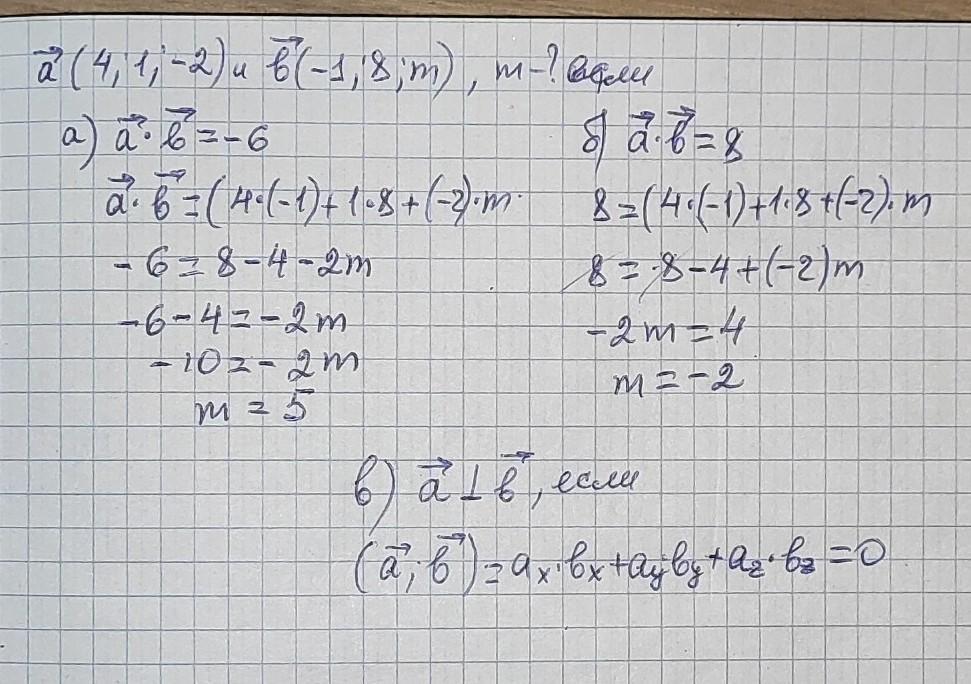 a⃗ (4; 1; -2) и b⃗ (-1; 8; m), m-? если
а) a⃗ · b⃗ = -6
a⃗ · b⃗ = (4·(-1)+1·8+(-2)·m.
-6 = 8-4-2m
-6-4 = -2m
-10 = -2m
m = 5
б) a⃗ · b⃗ = 8
8 = (4·(-1)+1·8+(-2)·m
8 = 8-4+(-2)m
-2m = 4
m = -2
в) a⃗ ⊥ b⃗, если
(a⃗; b⃗) = aₓ·bₓ+a_y b_y+a_z·b_z = 0